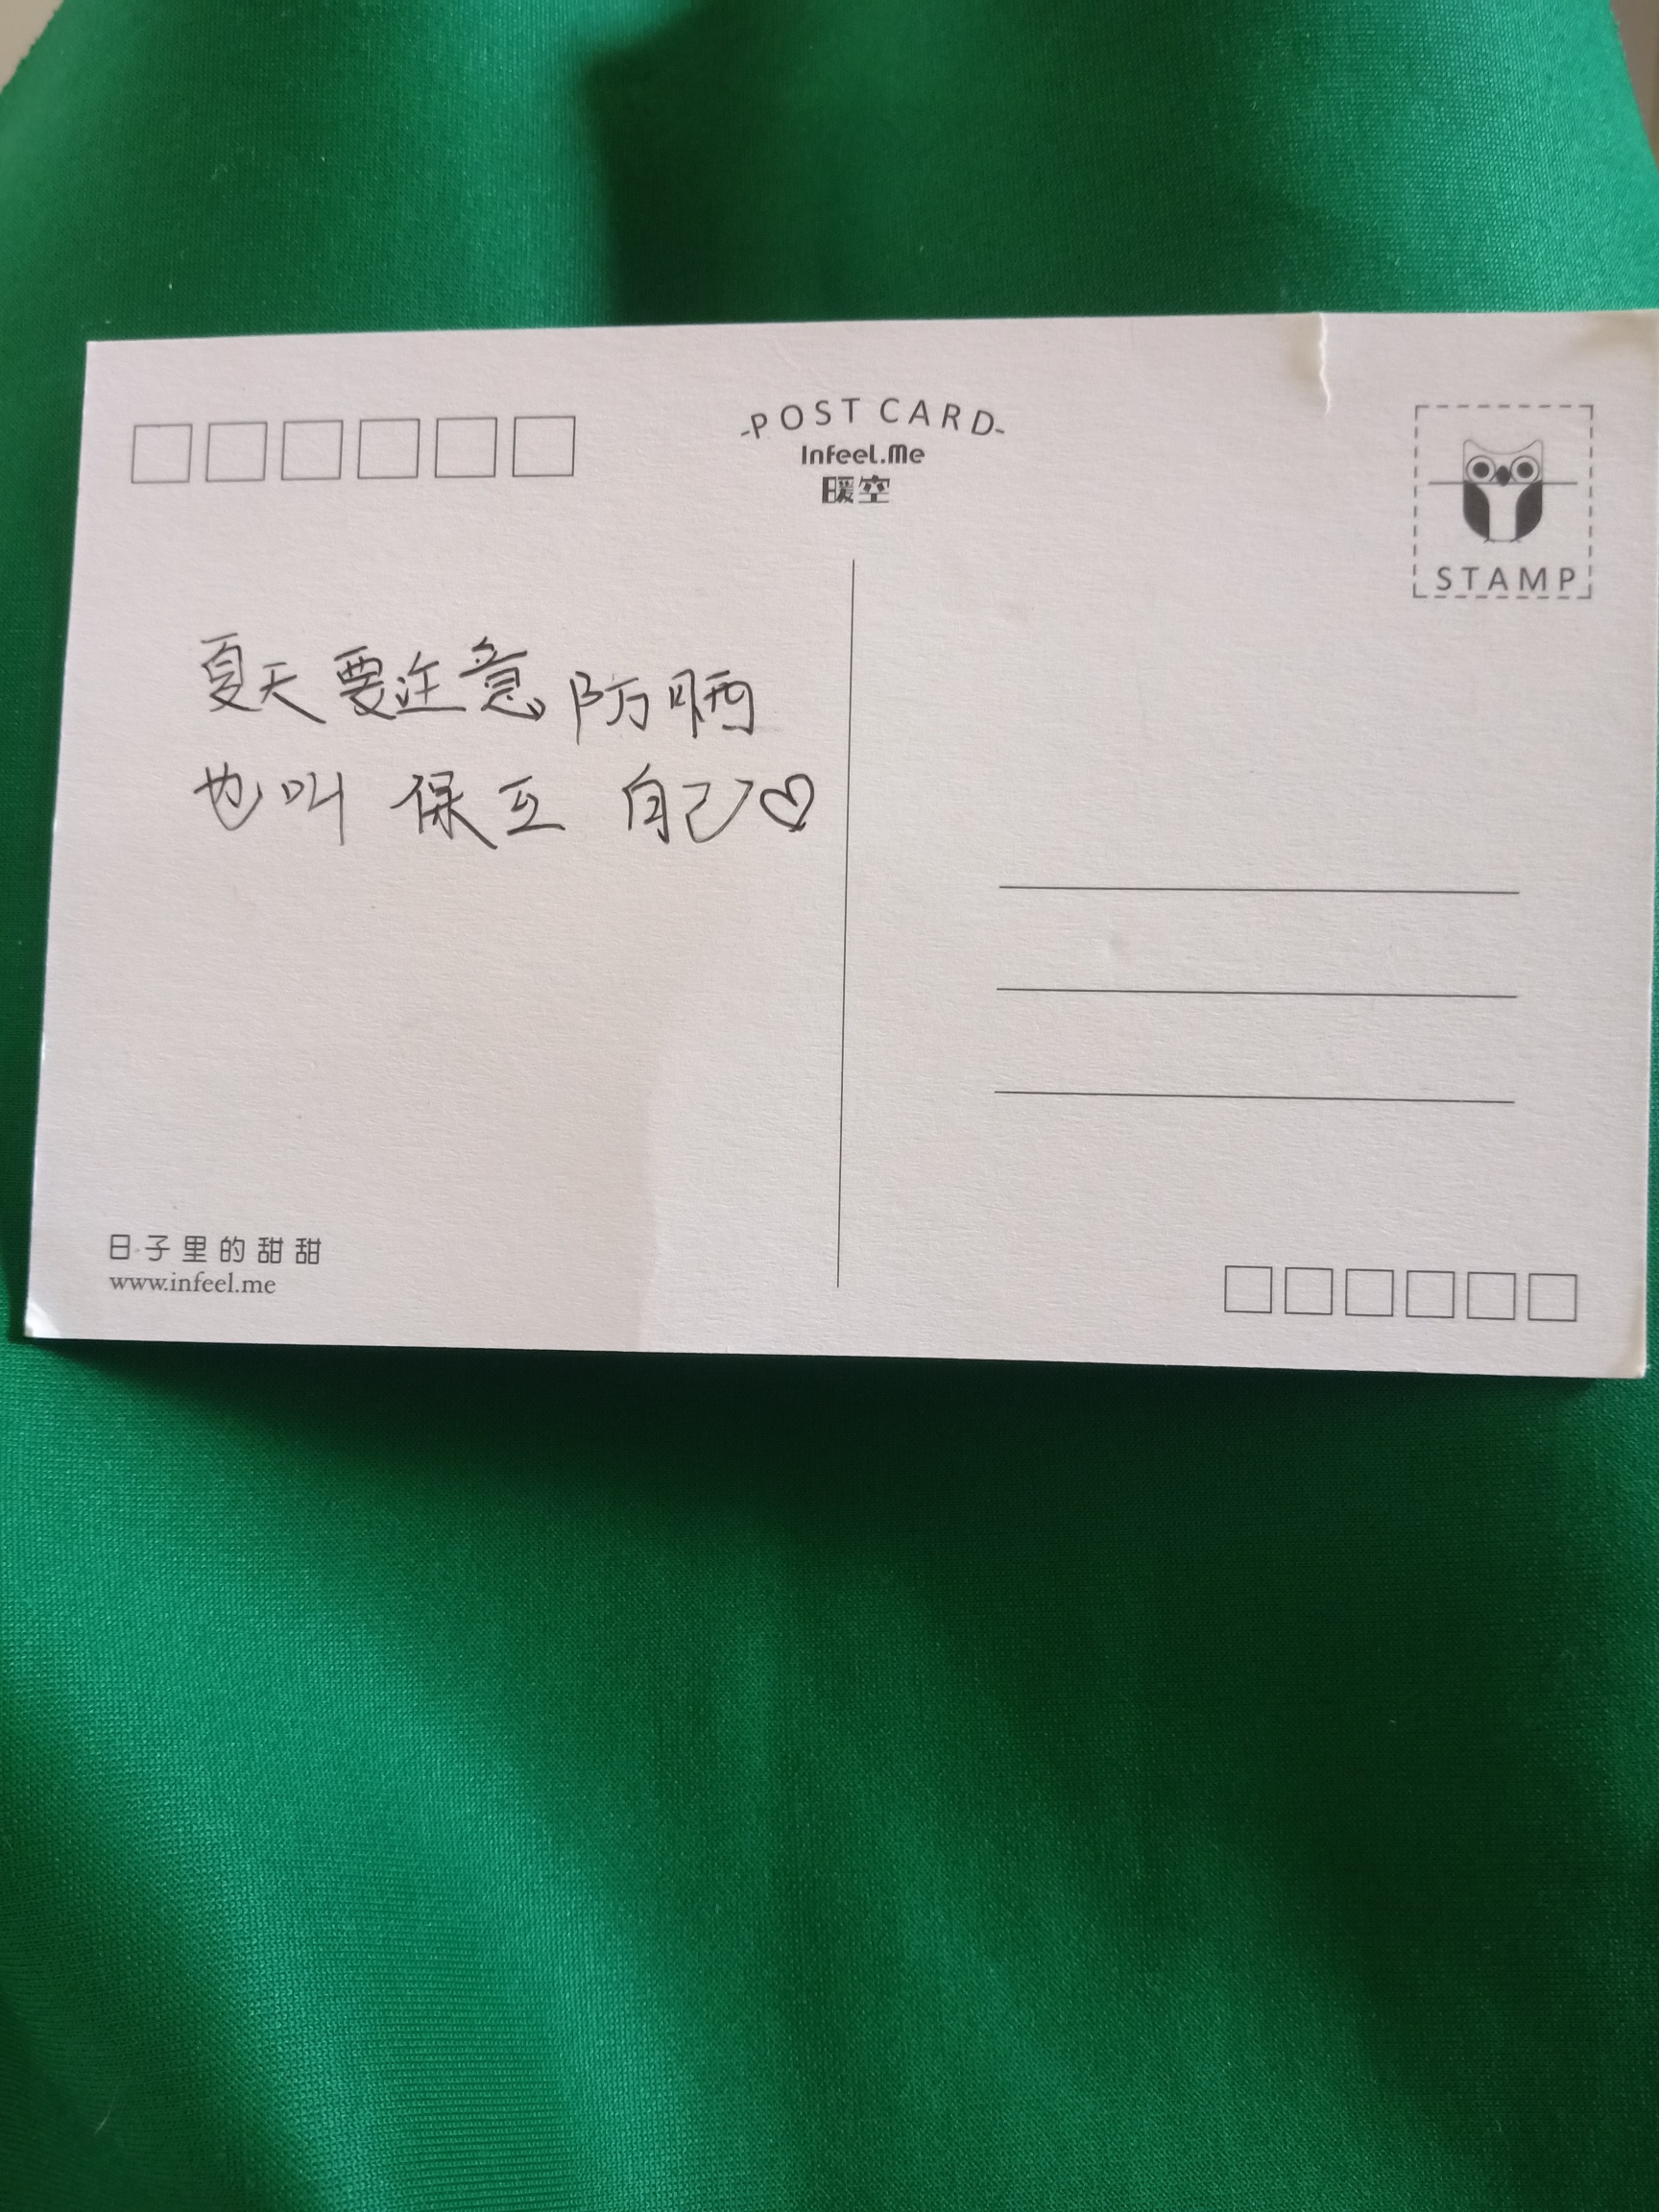 POST CARD
Infeel.Me
暖空
STAMP
夏天要注意防晒
也叫 保互 自己♡
日子里的甜甜
www.infeel.me